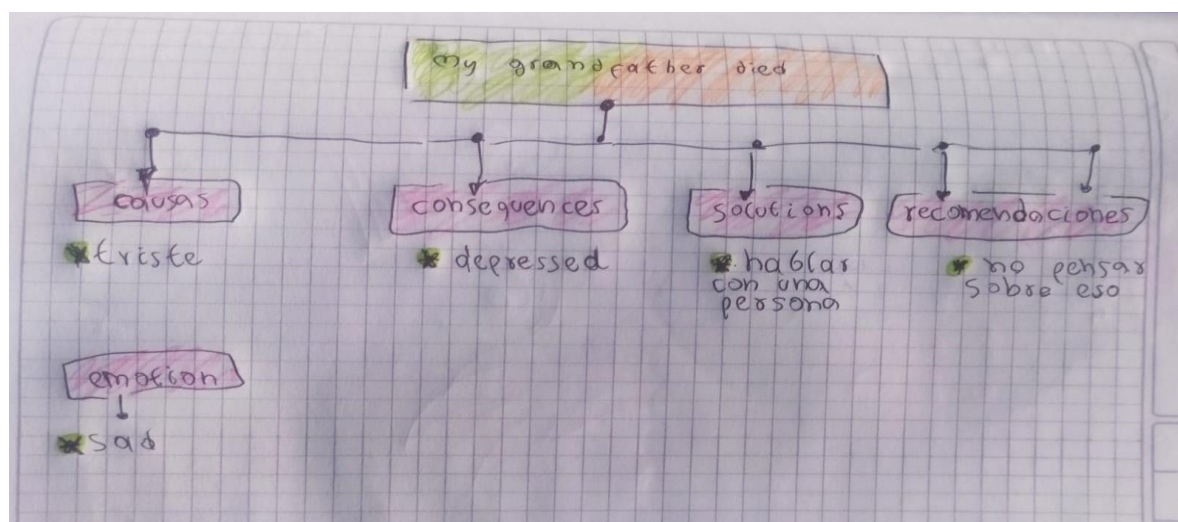 my grandfather died
causas
* triste
consequences
* depressed
solutions
* hablar
con una
persona
recomendaciones
* no pensar
sobre eso
emotion
* sad